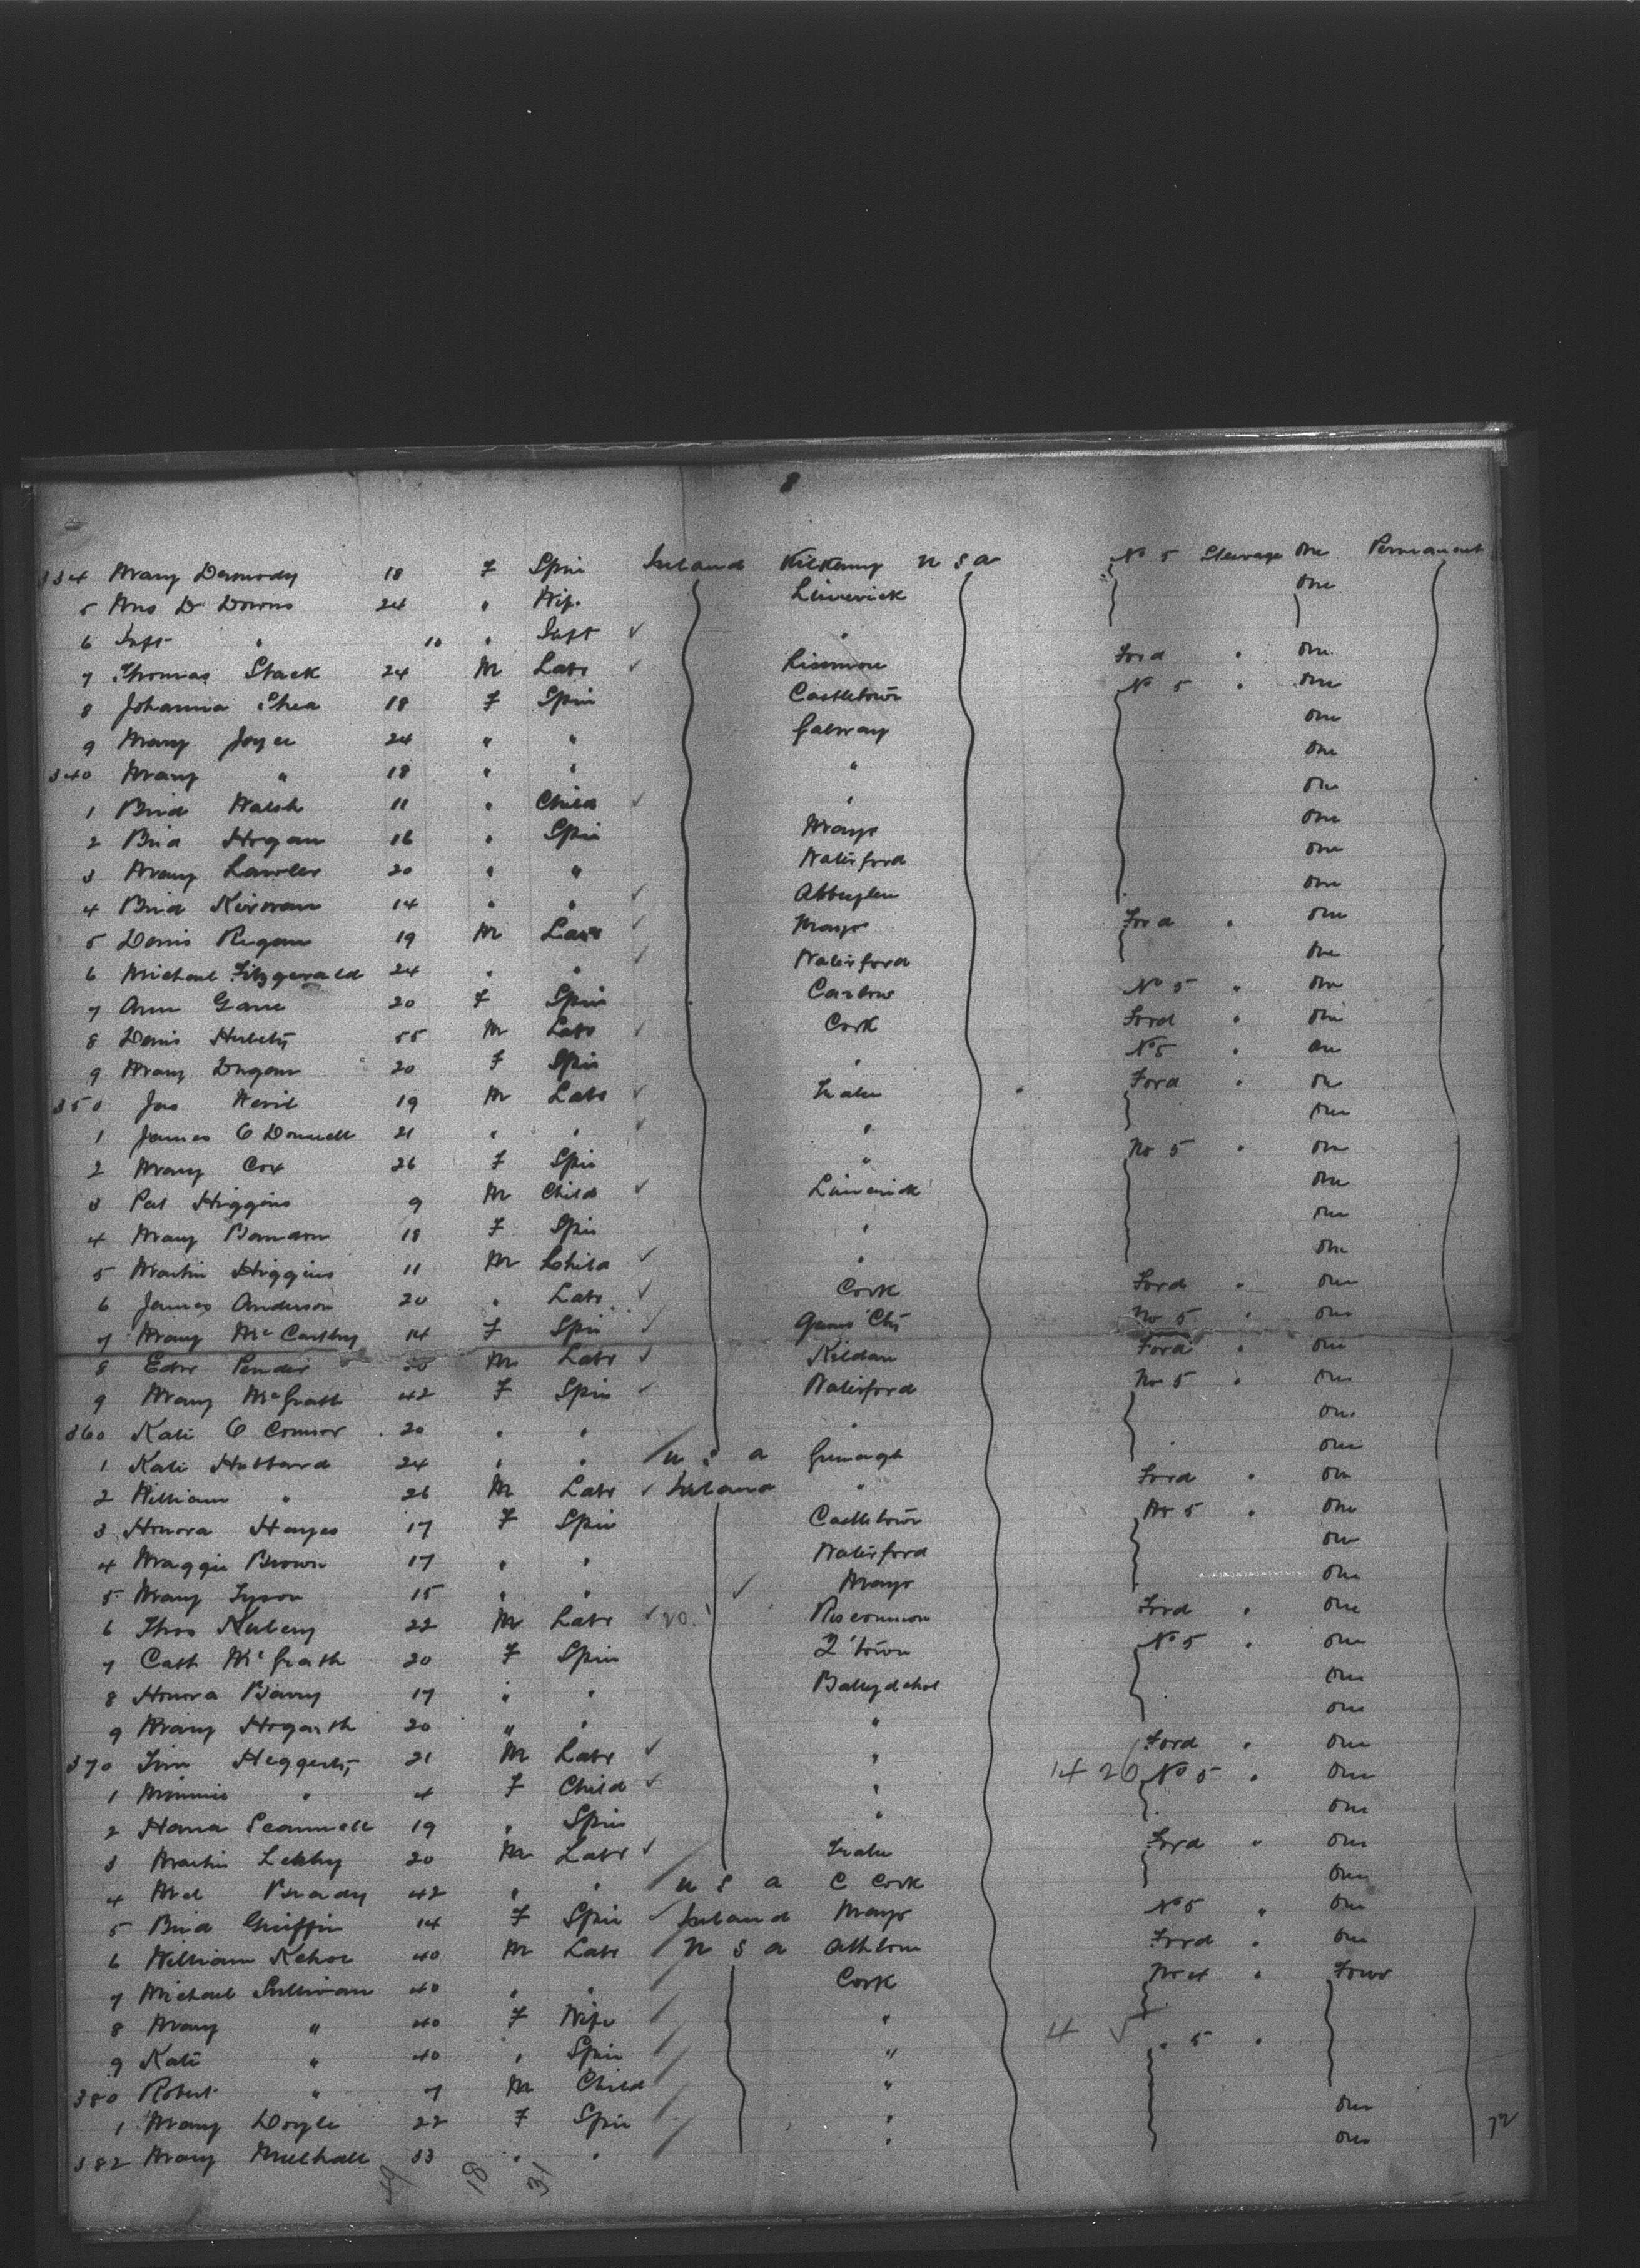 8
334 Mary Dermody 18 F Spin Ireland Kilkenny U S A No 5 Steerage One Permanent
5 Mrs D Downs 24 " Wife Limerick One
6 Inft " 10 " Inft ✓ "
7 Thomas Stack 24 M Labr ✓ Lismore Ford " One
8 Johanna Shea 18 F Spin Castletown No 5 " One
9 Mary Joyce 24 " " Galway One
340 Mary " 18 " " " One
1 Brid Walsh 11 " Child ✓ " One
2 Brid Hogan 16 " Spin Mayo One
3 Mary Lawler 20 " " Waterford One
4 Brid Kirwan 14 " " ✓ One
5 Denis Regan 19 M Labr ✓ Mayo Ford " One
6 Michael Fitzgerald 24 " " ✓ Waterford One
7 Ann Gane 20 F Spin Carlow No 5 " One
8 Denis 55 M Labr ✓ Cork Ford " One
9 Mary Dugan 20 F Spin " No 5 " One
350 Jas 19 M Labr ✓ Tralee Ford " One
1 James O Donnell 21 " " ✓ " One
2 Mary Cox 26 F Spin " No 5 " One
3 Pat Higgins 9 M Child ✓ Limerick One
4 Mary 18 F Spin " One
5 Martin Higgins 11 M Child ✓ " One
6 James Anderson 20 " Labr ✓ Cork Ford " One
7 Mary McCarthy 14 F Spin ✓ No 5 " One
8 Edw Pender M Labr ✓ Kildare Ford " One
9 Mary McGrath 42 F Spin ✓ Waterford No 5 " One
360 Kate O Connor 20 " " " One
1 Kate Hubbard 24 " " / U S A One
2 William " 26 M Labr ✓ Ireland " Ford " One
3 Honora Hayes 17 F Spin Castletown No 5 " One
4 Maggie Brown 17 " " Waterford One
5 Mary Tyson 15 " " ✓ Mayo One
6 Thos 22 M Labr ✓ 20 Roscommon Ford " One
7 Cath McGrath 20 F Spin Q'town No 5 " One
8 Honora Barry 17 " " Ballydehob One
9 Mary Hogarth 20 " " " One
370 Tim Heggerty 21 M Labr ✓ " Ford " One
1 Minnie " 4 F Child ✓ " 14 26 No 5 " One
2 Hana Scannell 19 " Spin " One
3 Martin 20 M Labr ✓ Tralee Ford " One
4 Brady 42 " " / U S A C Cork One
5 Brid Griffin 14 F Spin ✓ Ireland Mayo No 5 " One
6 William Kehoe 40 M Labr / U S A Athlone Ford " One
7 Michael Sullivan 40 " " / Cork No 4 " Four
8 Mary " 40 F Wife / "
9 Kate " 40 " Spin / " 4 ✓ " 5 "
380 Robert " 7 M Child / "
1 Mary Doyle 22 F Spin / " One
382 Mary Mulhall 33 " " / " One
72
18 31